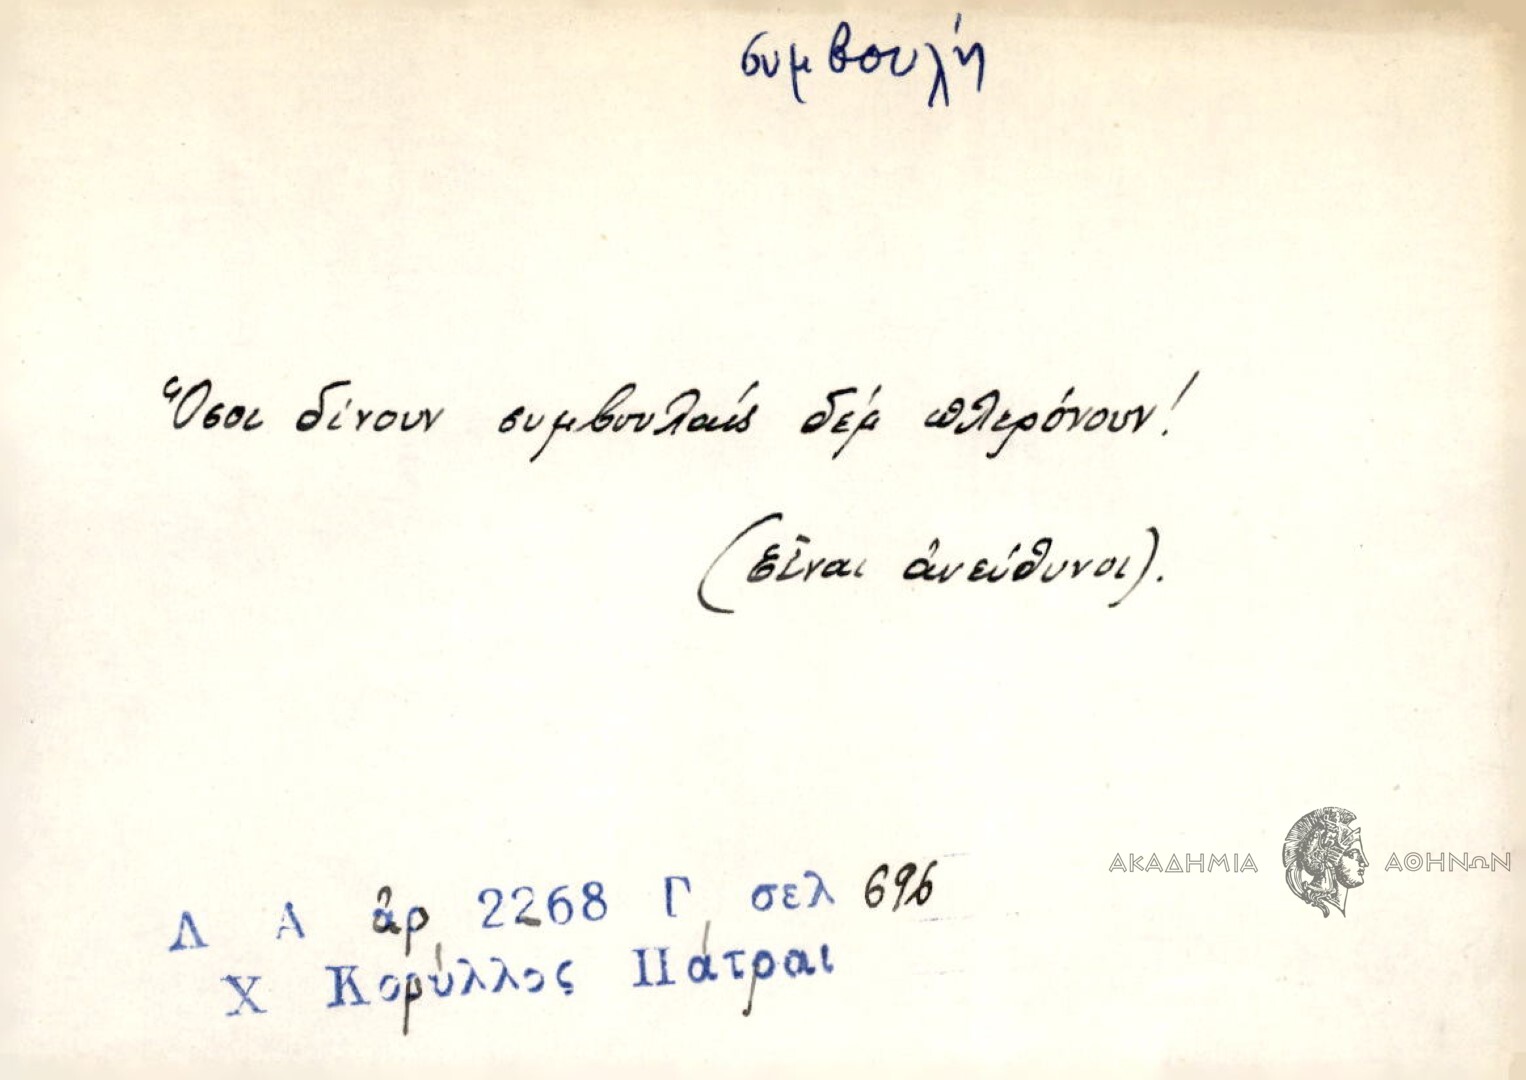 συμβουλή
Ὅσοι δίνουν συμβουλαίς δέμ πλερόνουν!
(Εἶναι ἀνεύθυνοι).
ΑΚΑΔΗΜΙΑ ΑΘΗΝΩΝ
Λ Α ἀρ 2268 Γ σελ 696
Χ Κορύλλος Πάτραι